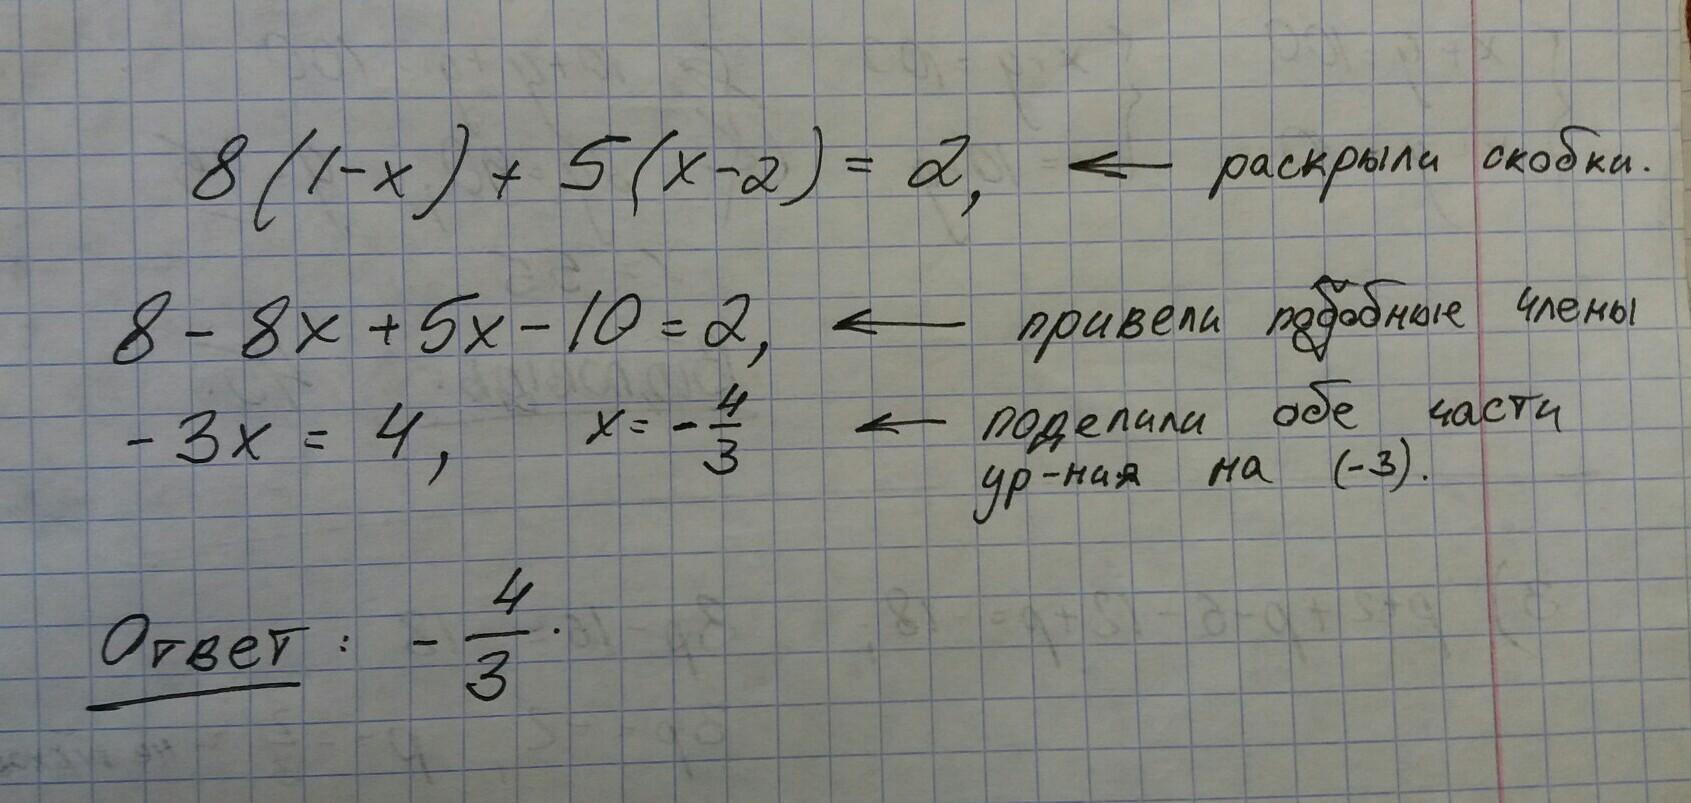 8(1-x)+5(x-2)=2, ← раскрыли скобки.
8-8x+5x-10=2, ← привели подобные члены
-3x=4, x=-4/3 ← поделили обе части
ур-ния на (-3).
Ответ: -4/3.